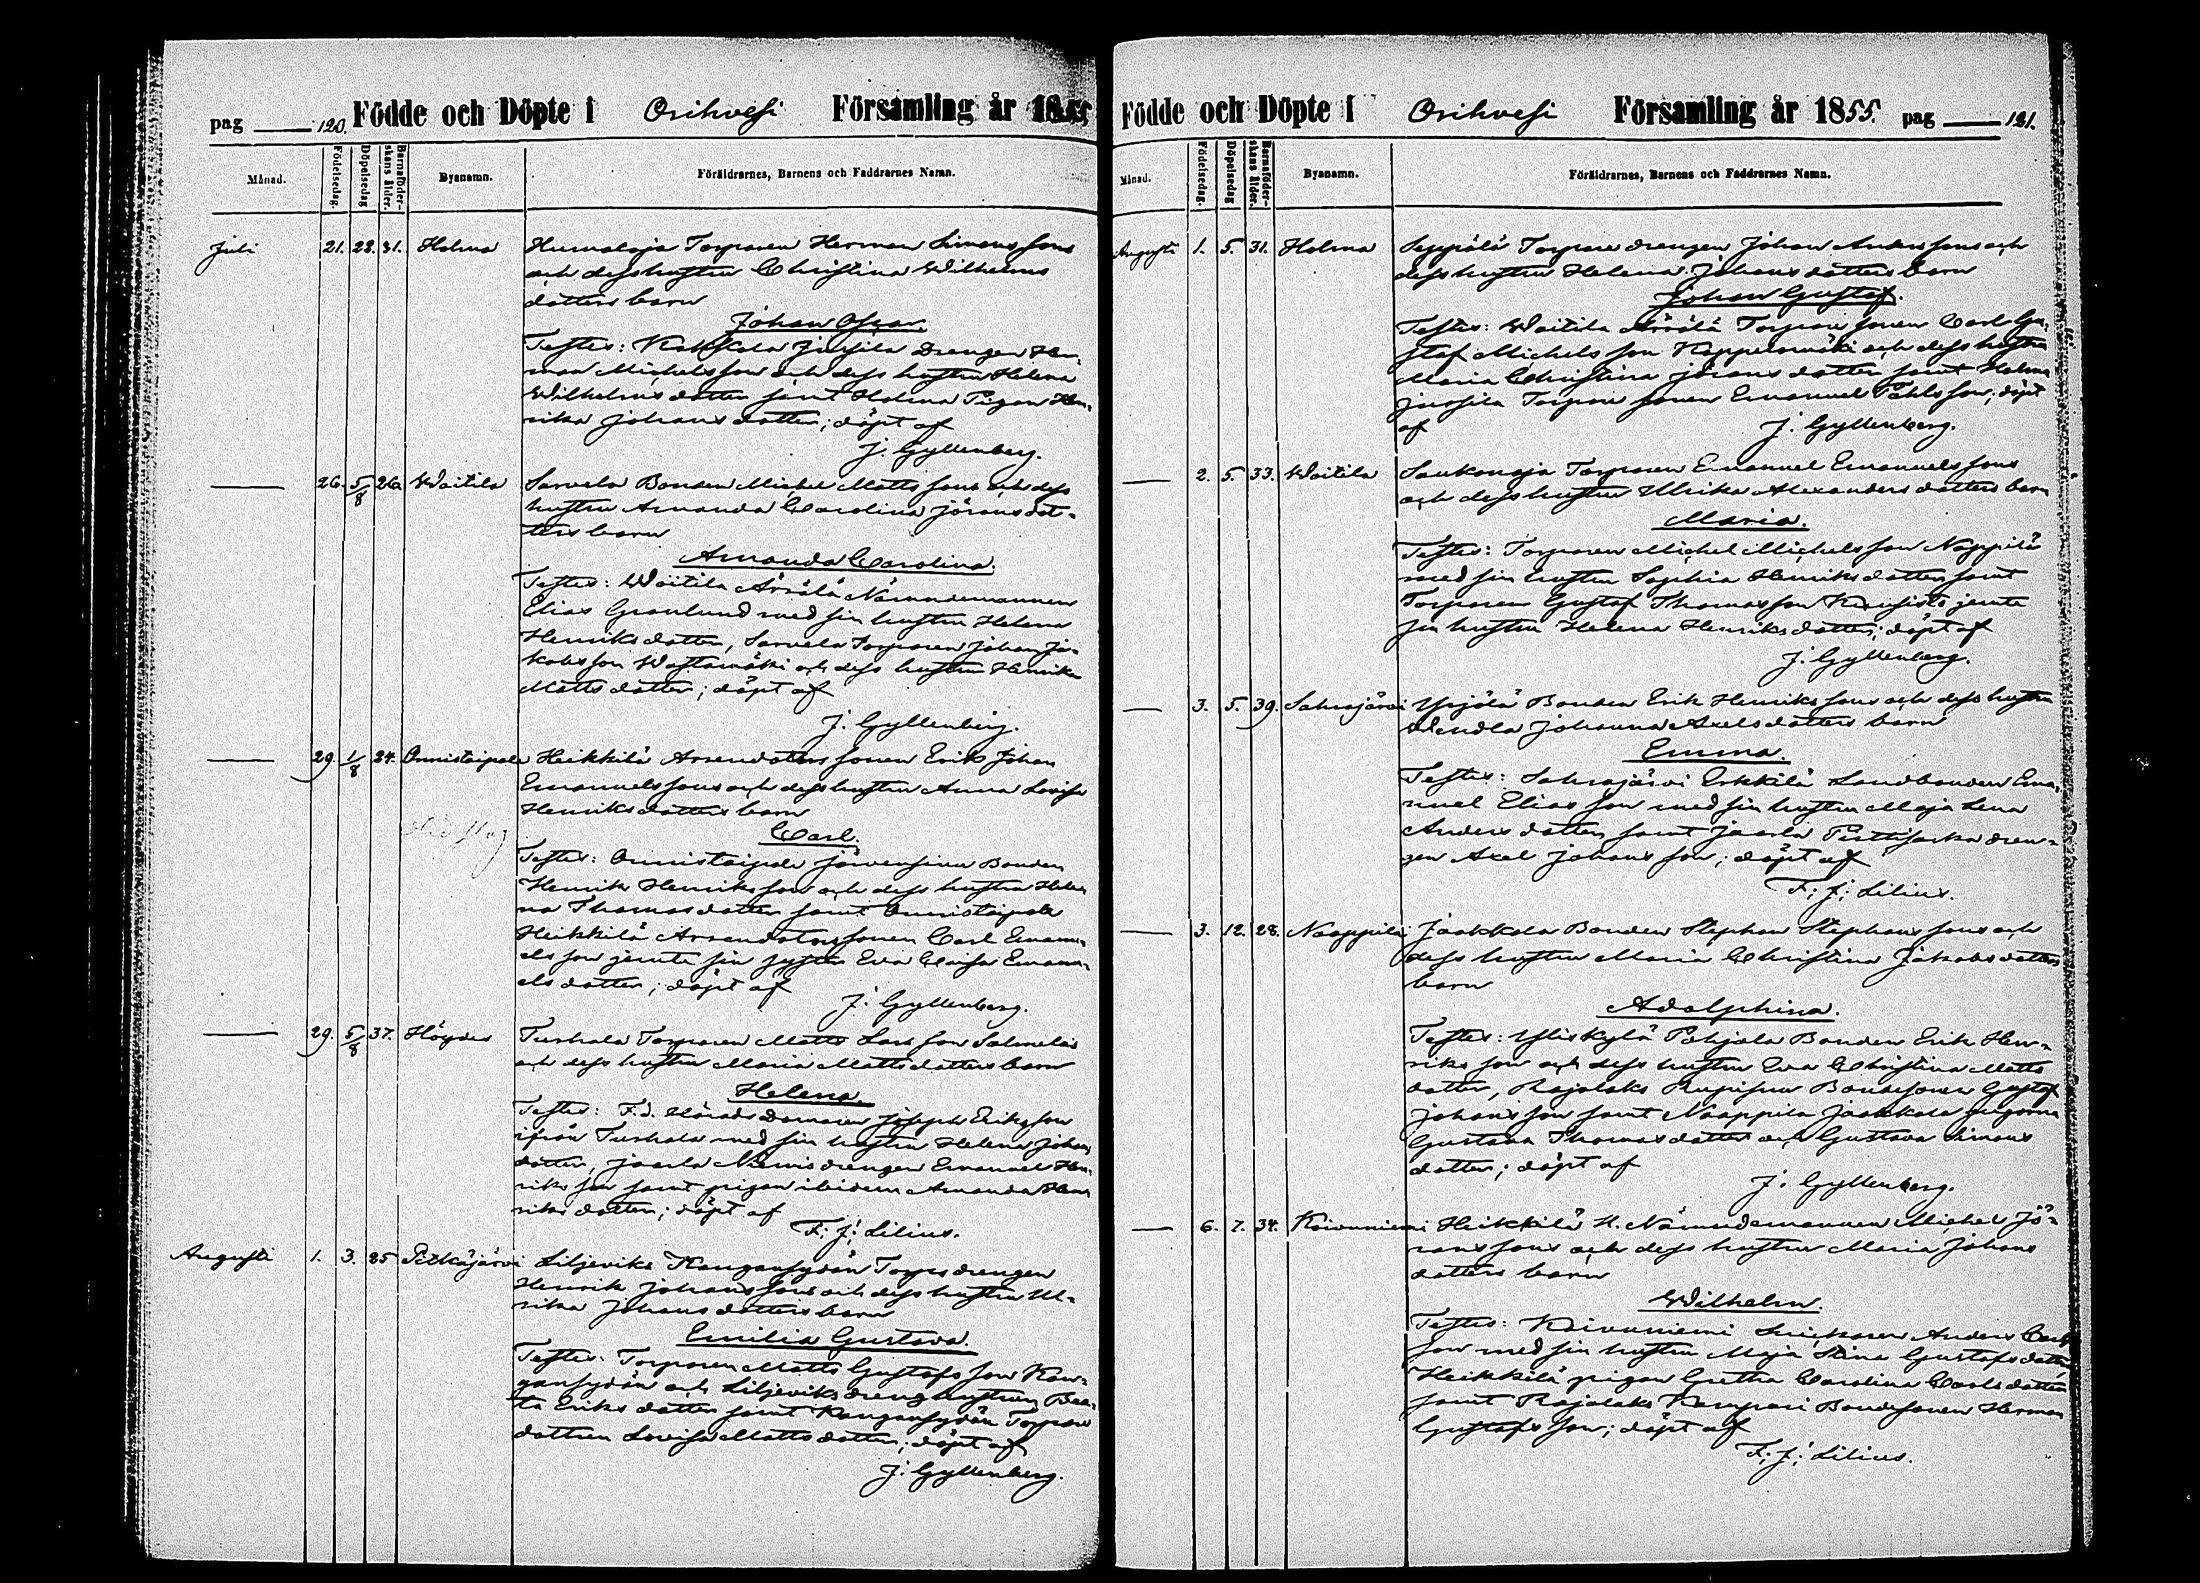 pag 120. Födde och Döpte i Orihvesi Församling år 1855
Månad. Födelsedag. Döpelsedag Barnaföderskans ålder. Byanamn. Föräldrarnes, Barnens och Faddrarnes Namn.
Juli 21. 22. 31. Holma Humaloja Torparen Herman Simonssons
och dess hustru Christina Wilhelms
dotters barn
Johan Oscar.
Testes: Kakkola Jussila Drengen Her-
man Michelsson och dess hustru Helena
Wilhelmsdotter samt Holma Pigan Hen-
rika Johansdotter; döpt af
J. Gyllenberg.
26. 5/8 26. Waitila Sarvela Bonden Michel Mattssons och dess
hustru Amanda Carolina Jöransdot-
ters barn
Amanda Carolina.
Testes: Waitila Ärrälä Nämndemannen
Elias Granlund med sin hustru Helena
Henriksdotter, Sarvela Torparen Johan Ja-
kobsson Wastamäki och dess hustru Henrika
Mattsdotter; döpt af
J. Gyllenberg.
29. 1/8 24. Onnistaipale Heikkilä Arrendators sonen Erik Johan
Emanuelssons och dess hustru Anna Lovisa
Henriksdotters barn
Carl.
Testes: Onnistaipale Järvensivu Bonden
Henrik Henriksson och dess hustru Hele-
na Thomasdotter samt Onnistaipale
Heikkilä Arrendators sonen Carl Emanu-
elsson jemte sin syster Eva Caisa Emanu-
elsdotter; döpt af
J. Gyllenberg.
29. 5/8 37. Höydes Turkala Torparen Matts Larsson Salmelas
och dess hustru Maria Mattsdotters barn
Helena.
Testes: F.d. Härads Domaren Joseph Eriksson
ifrån Turkala med sin hustru Helena Johans
dotter, Jaarla Niemis drengen Emanuel Hen-
riksson samt pigan ibidem Amanda Hen-
riksdotter; döpt af
F. J. Lilius.
Augusti 1. 3. 25 Pitkäjärvi Liljeviks Kangansydän Torps drengen
Henrik Johanssons och dess hustru Ul-
rika Johansdotters barn
Emilia Gustava.
Testes: Torparen Matts Gustafsson Kan-
gansydän och Liljeviks dreng hustrun Bea-
ta Eriksdotter samt Kangansydän Torpare
dottren Lovisa Mattsdotter; döpt af
J. Gyllenberg.
Födde och Döpte i Orihvesi Församling år 1855. pag 121.
Månad. Födelsedag. Döpelsedag Barnaföderskans ålder. Byanamn. Föräldrarnes, Barnens och Faddrarnes Namn.
Augusti 1. 5. 31. Holma Seppälä Torpare drengen Johan Anderssons och
dess hustru Helena Johansdotters barn
Johan Gustaf.
Testes: Waitila Ärrälä Torpare sonen Carl Gu-
staf Michelsson Koppelomäki och dess hustru
Maria Christina Jöransdotter samt Holma
Jussila Torpare sonen Emanuel Påhlsson; döpt
af J. Gyllenberg.
2. 5. 33. Waitila Saukonoja Torparen Emanuel Emanuelssons
och dess hustru Ulrika Alexandersdotters barn
Maria.
Testes: Torparen Michel Michelsson Nappilä
med sin hustru Sophia Henriksdotter samt
Torparen Gustaf Thomasson jemte
sin hustru Helena Henriksdotter; döpt af
J. Gyllenberg.
3. 5. 39. Sahrajärvi Yrjölä Bonden Erik Henrikssons och dess hustru
Wendla Johanna Axelsdotters barn
Emma.
Testes: Sahrajärvi Erkkilä Landbonden Ema-
nuel Eliasson med sin hustru Maja Lena
Andersdotter samt Jaarla dren-
gen Axel Johansson; döpt af
F. J. Lilius.
3. 12. 28. Naappila Jaakkola Bonden Stephan Stephanssons och
dess hustru Maria Christina Jakobsdotters
barn
Adolphina.
Testes: Yliskylä Pohjola Bonden Erik Hen-
riksson och dess hustru Eva Christina Matts
dotter, Rajalaks Bondesonen Gustaf
Johansson samt Naappila Jaakkola pigorna
Gustava Thomasdotter och Gustava Simons
dotter; döpt af
J. Gyllenberg.
6. 7. 34. Koivuniemi Heikkilä H. Nämndemannen Michel Jö-
ranssons och dess hustru Maria Johans
dotters barn
Wilhelm.
Testes: Koivuniemi Anders Carls
son med sin hustru Maja Stina Gustafsdotter,
Heikkilä pigan Gretha Carolina Carlsdotter
samt Rajalaks Kampari Bondesonen Herman
Gustafsson; döpt af
F. J. Lilius.